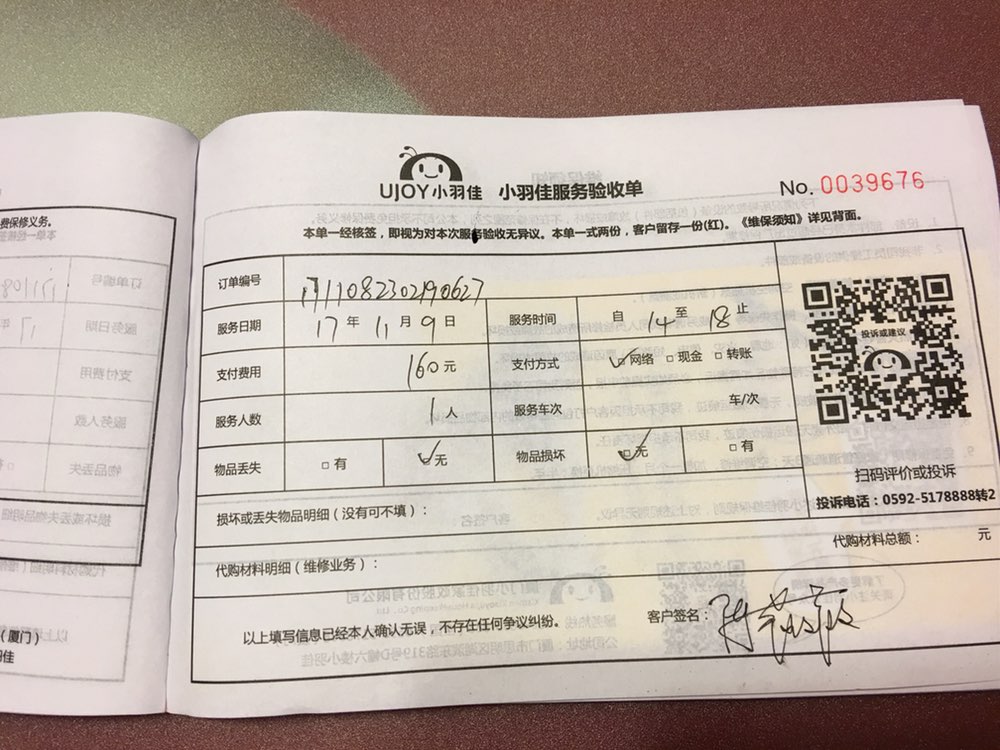 费保修义务。
UJOY小羽佳 小羽佳服务验收单 No. 0039676
本单一经核签，即视为对本次服务验收无异议。本单一式两份，客户留存一份(红)。《维保须知》详见背面。
订单编号 1711082302190627
服务日期 17 年 11 月 9 日 服务时间 自 14 至 18 止
投诉或建议
支付费用 160 元 支付方式 ☑网络 □现金 □转账
服务人数 1 人 服务车次 车/次
物品丢失 □有 ☑无 物品损坏 ☑无 □有
扫码评价或投诉
投诉电话：0592-5178888转2
损坏或丢失物品明细（没有可不填）：
代购材料明细（维修业务）： 代购材料总额： 元
以上填写信息已经本人确认无误，不存在任何争议纠纷。 客户签名：
（厦门）
羽佳